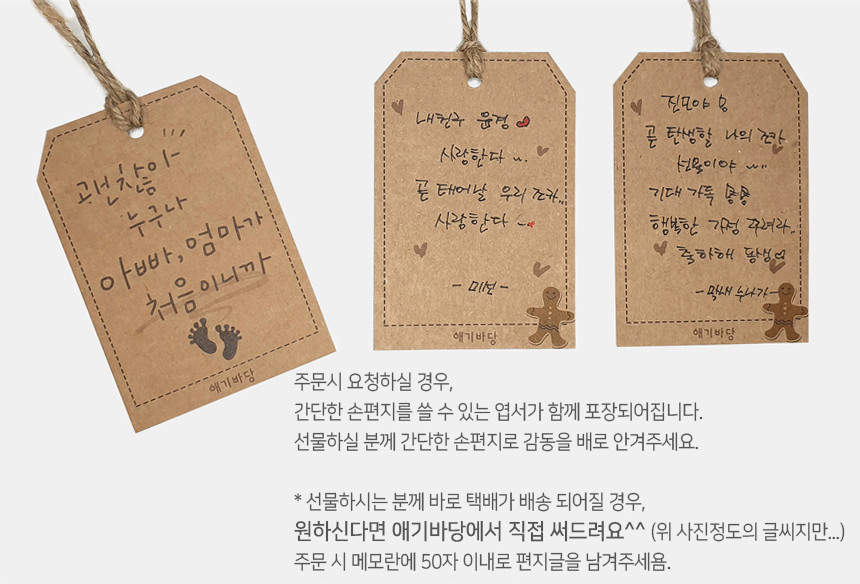 괜찮아
누구나
아빠, 엄마가
처음이니까
애기바당
내친구 윤경
사랑한다
곧 태어날 우리 조카..
사랑한다
- 미선 -
애기바당
진모야
곧 탄생할 나의 조카
선물이야
기대 가득 뿅뿅
행복한 가정 꾸려라..
축하해 동생
- 막내 누나가 -
애기바당
주문시 요청하실 경우,
간단한 손편지를 쓸 수 있는 엽서가 함께 포장되어집니다.
선물하실 분께 간단한 손편지로 감동을 배로 안겨주세요.
* 선물하시는 분께 바로 택배가 배송 되어질 경우,
원하신다면 애기바당에서 직접 써드려요^^ (위 사진정도의 글씨지만...)
주문 시 메모란에 50자 이내로 편지글을 남겨주세욤.